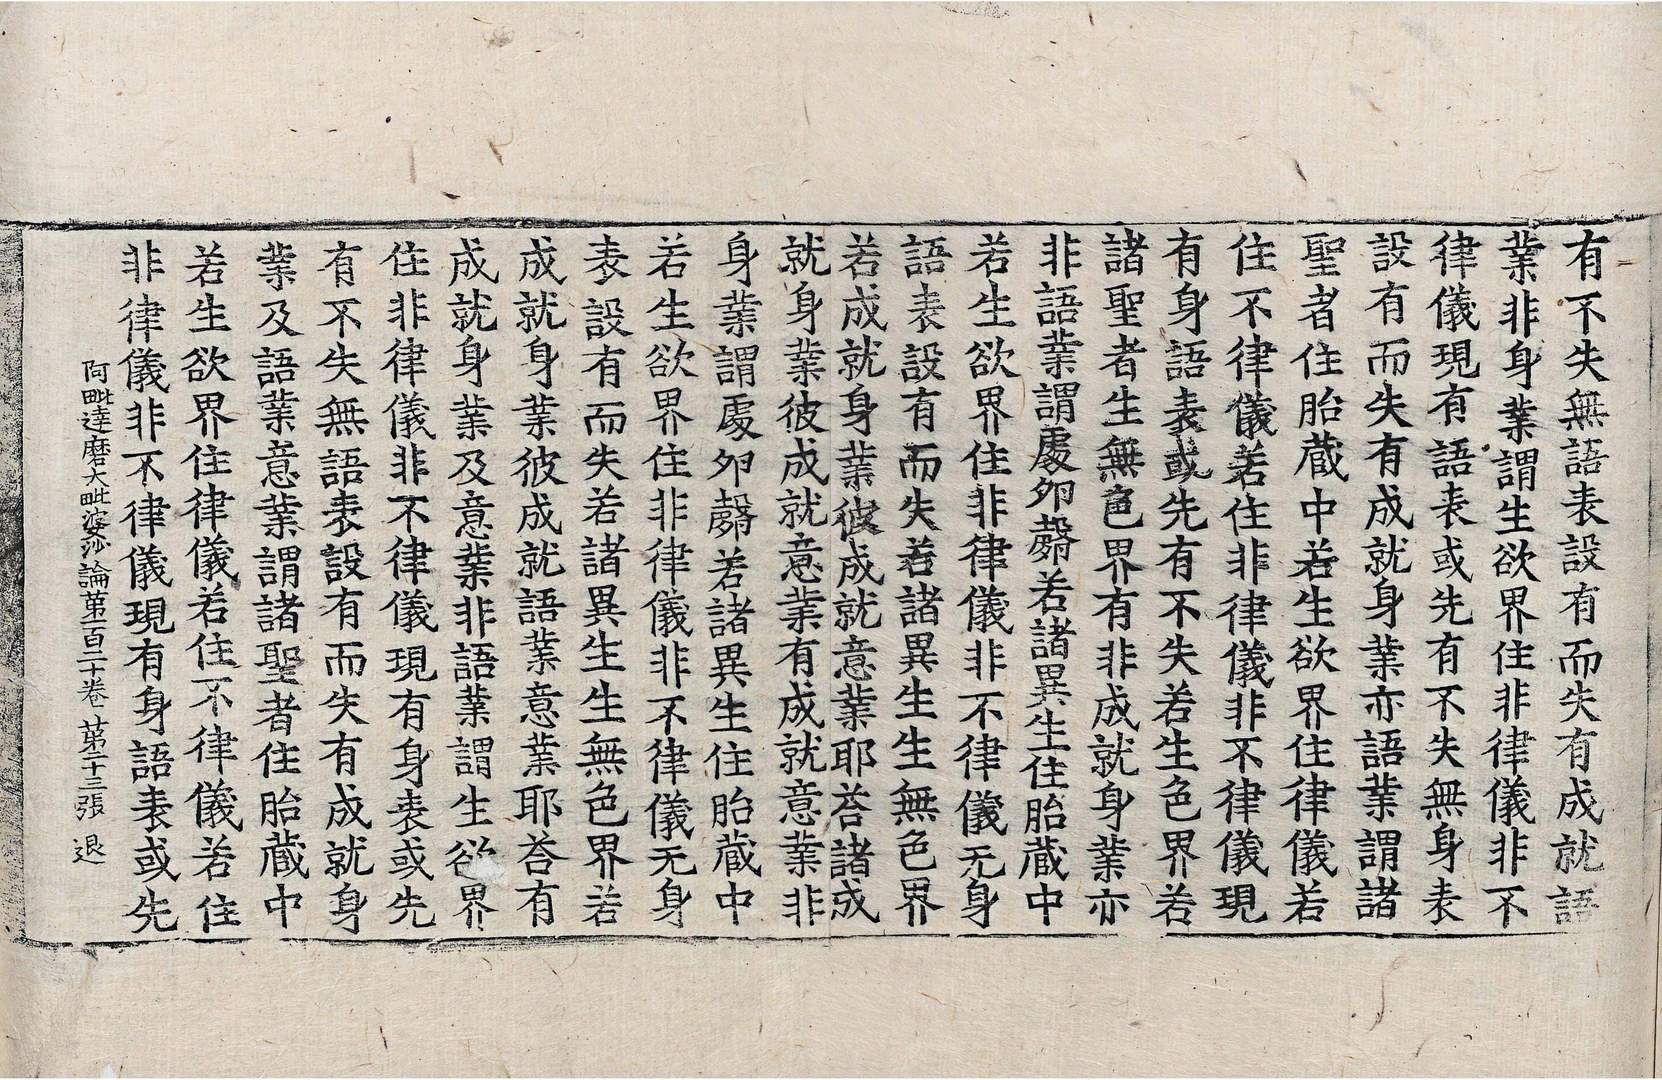 有不失無語表設有而失有成就語
業非身業謂生欲界住非律儀非不
律儀現有語表或先有不失無身表
設有而失有成就身業亦語業謂諸
聖者住胎藏中若生欲界住律儀若
住不律儀若住非律儀非不律儀現
有身語表或先有不失若生色界若
諸聖者生無色界有非成就身業亦
非語業謂處夘㲉若諸異生住胎藏中
若生欲界住非律儀非不律儀无身
語表設有而失若諸異生生無色界
若成就身業彼成就意業耶荅諸成
就身業彼成就意業有成就意業非
身業謂處夘㲉若諸異生住胎藏中
若生欲界住非律儀非不律儀无身
表設有而失若諸異生生無色界若
成就身業彼成就語業意業耶荅有
成就身業及意業非語業謂生欲界
住非律儀非不律儀現有身表或先
有不失無語表設有而失有成就身
業及語業意業謂諸聖者住胎藏中
若生欲界住律儀若住不律儀若住
非律儀非不律儀現有身語表或先
阿毗達磨大毗婆沙論苐一百二十卷 苐二十三張 退